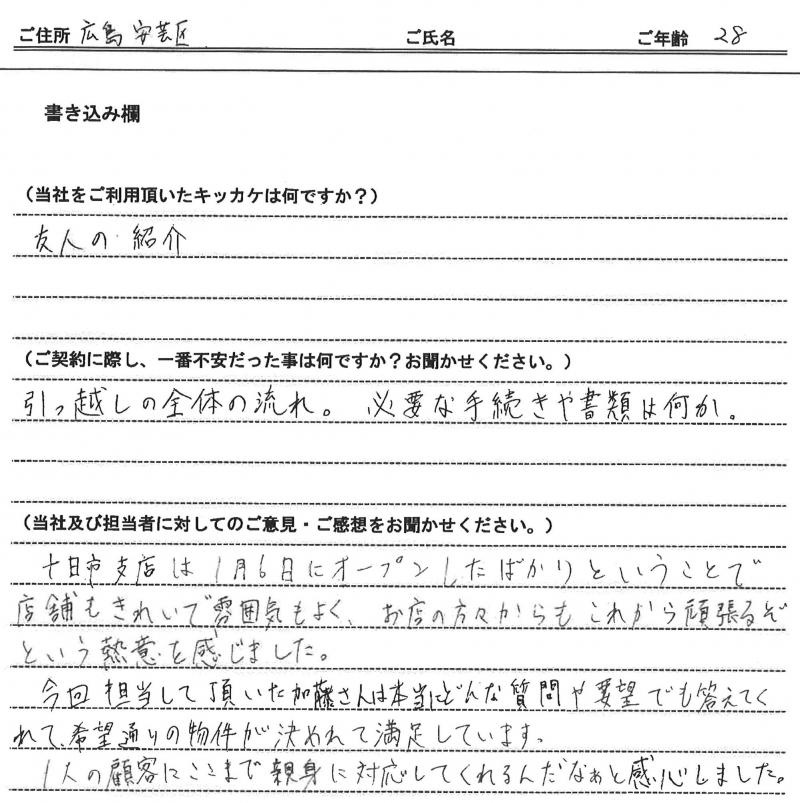 ご住所 広島 安芸区 ご氏名 ご年齢 28
書き込み欄
（当社をご利用頂いたキッカケは何ですか？）
友人の紹介
（ご契約に際し、一番不安だった事は何ですか？お聞かせください。）
引っ越しの全体の流れ。 必要な手続きや書類は何か。
（当社及び担当者に対してのご意見・ご感想をお聞かせください。）
十日市支店は1月6日にオープンしたばかりということで
店舗もきれいで雰囲気もよく、お店の方々からもこれから頑張るぞ
という熱意を感じました。
今回担当して頂いた加藤さんは本当にどんな質問や要望でも答えてく
れて、希望通りの物件が決めれて満足しています。
1人の顧客にここまで親身に対応してくれるんだなぁと感心しました。